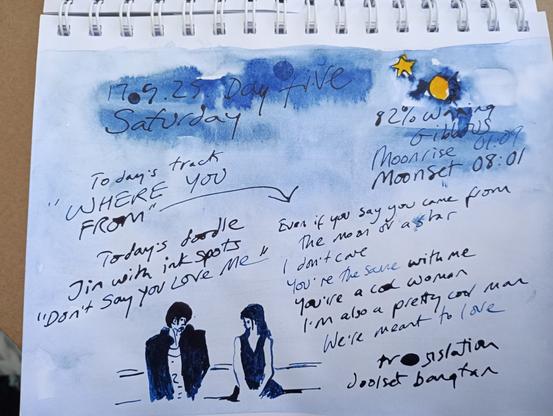 17.9.25 Day five
Saturday
82% Waning
Gibbous
Moonrise 01:09
Moonset 08:01
Today's track
"WHERE YOU
FROM"
Today's doodle
Jin with ink spots
"Don't Say You Love Me"
Even if you say you came from
The moon or a star
I don't care
You're the same with me
You're a cool woman
I'm also a pretty cool man
We're meant to love
doolset bangtan